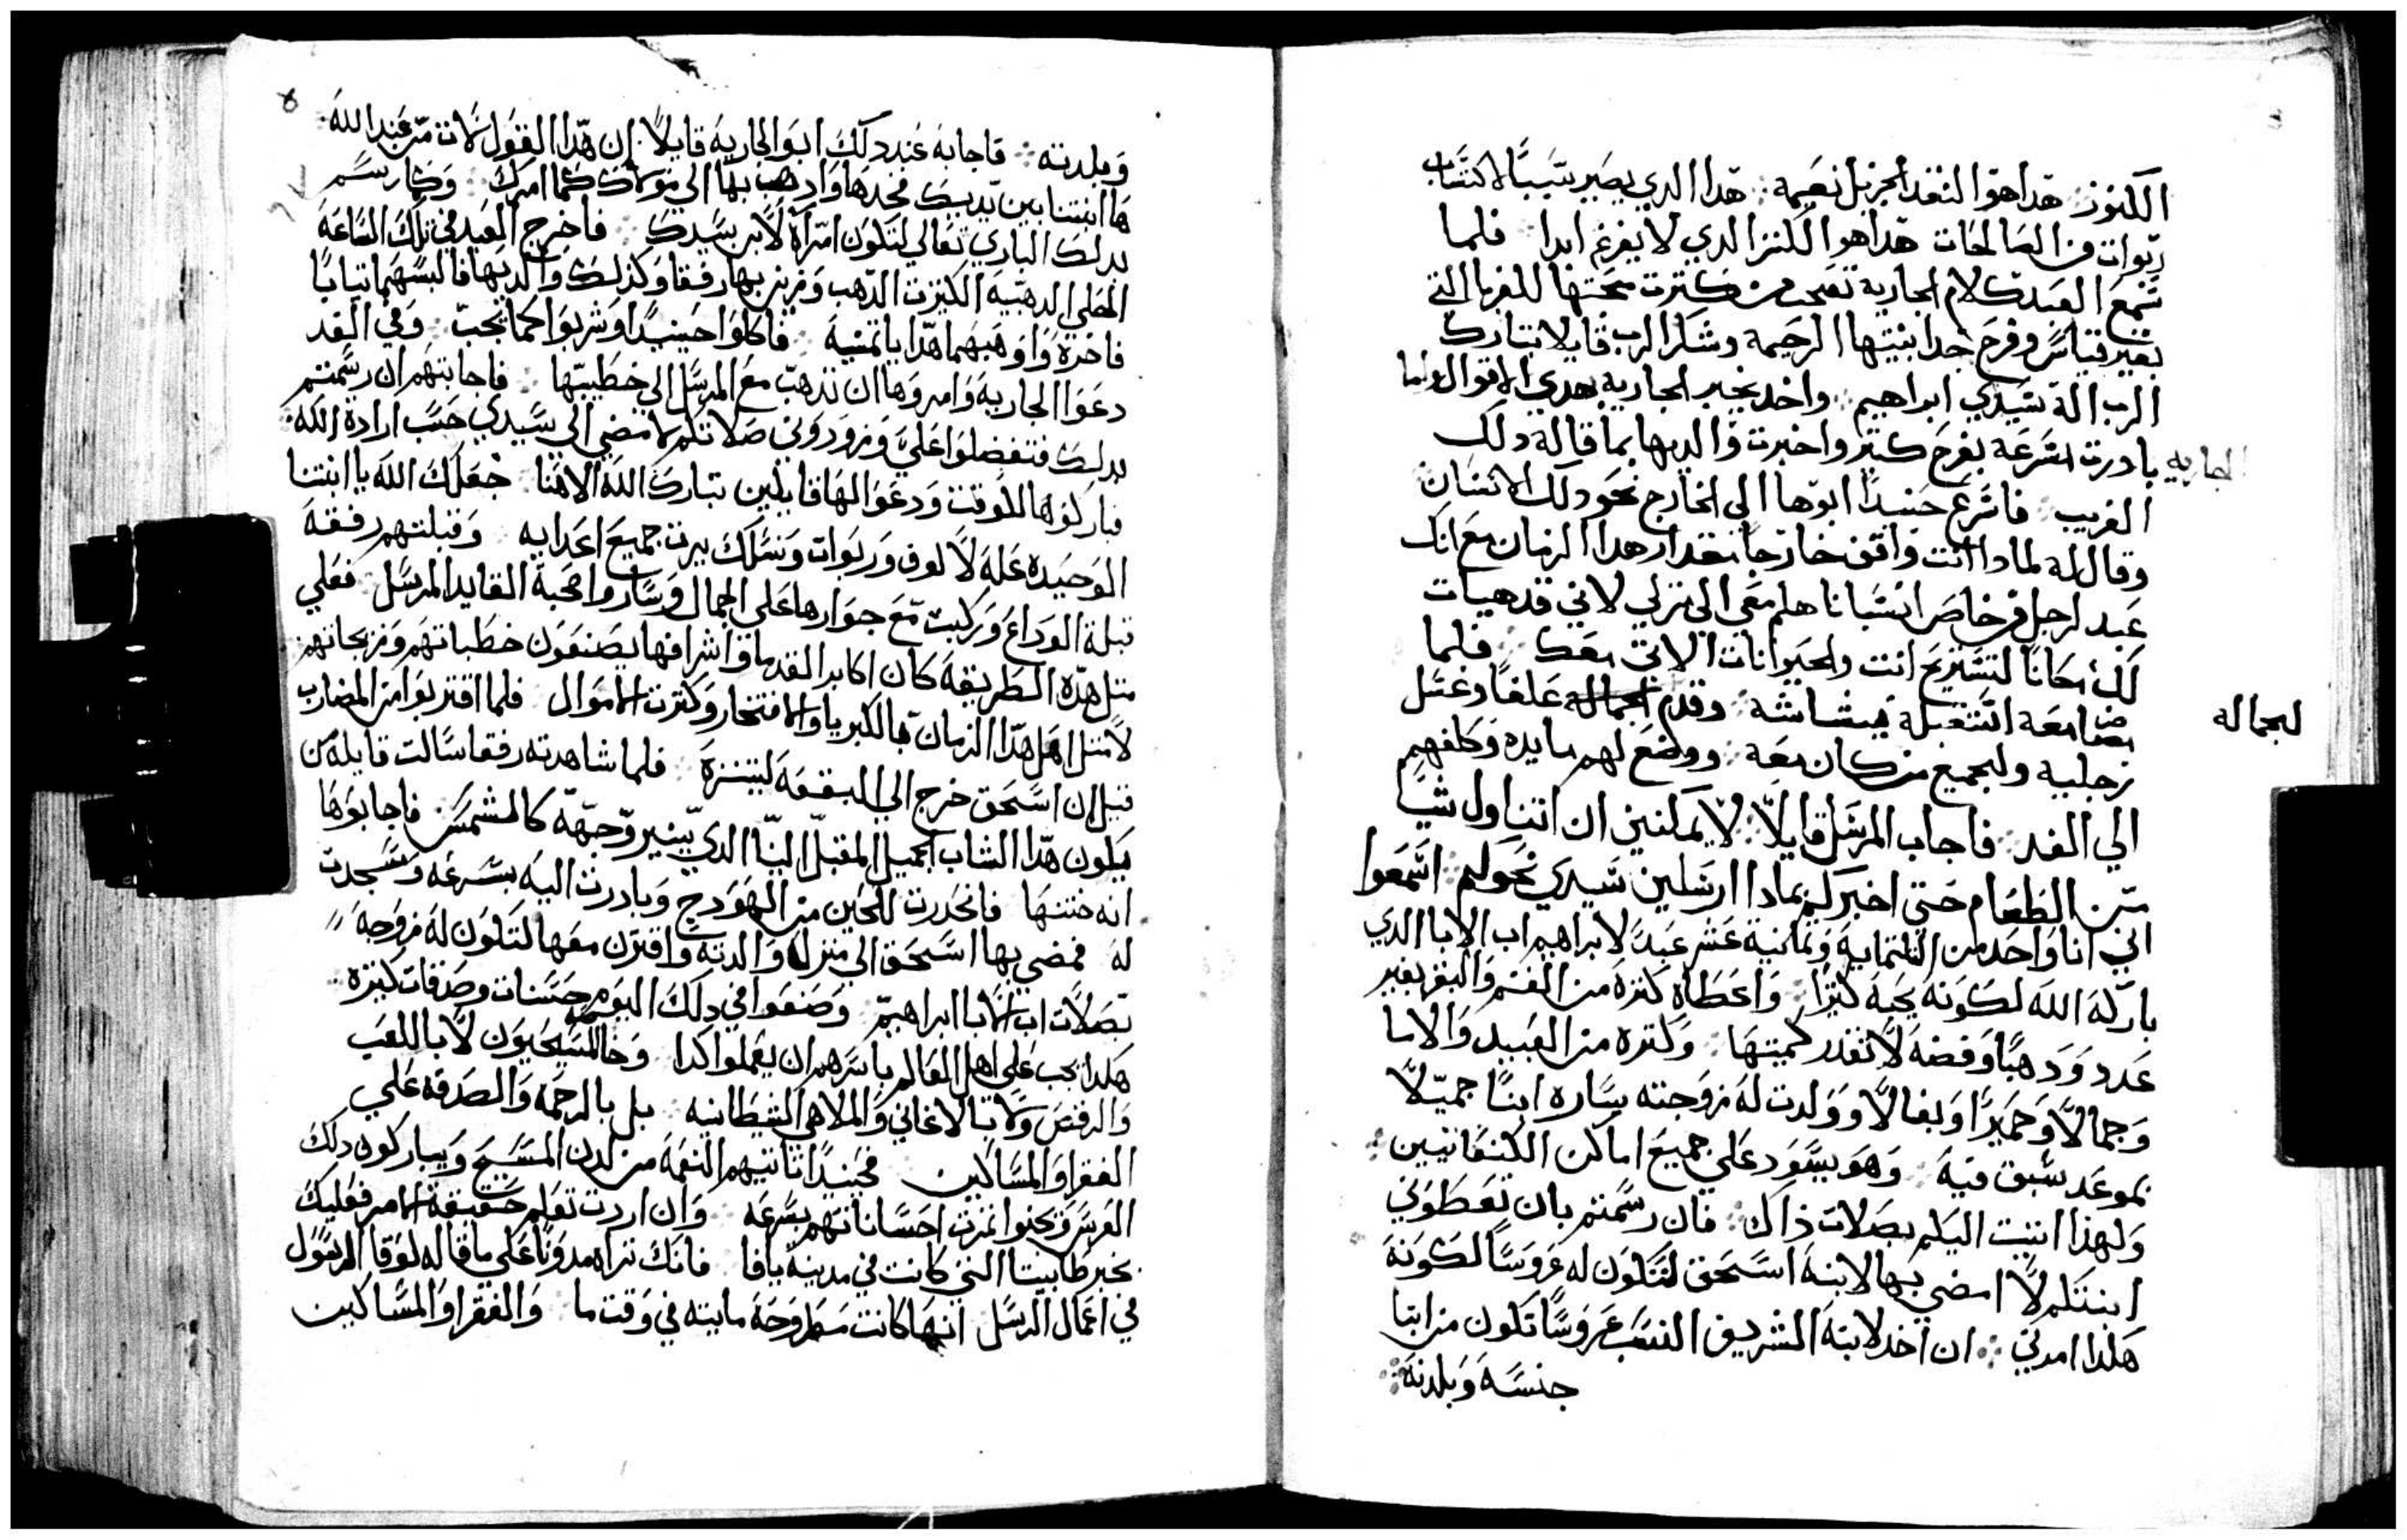 الكنوز هدا هوا النقد الجزيل نعيمه هدا الدي يصير سببا لاكتساب
ربوات من الصالحات هدا هوا الكنز الدي لا يفرغ ابدا فلما
سمع العبد كلام الجارية تعجب من كترت محبتها للغربا التي
بغير قياس وفرح جدا بنيتها الرحيمة وشكر الرب قايلا تبارك
الرب الة سيدي ابراهيم واخد يخبر الجارية بهدي الاقوال ولما
الجاريه بادرت بسرعة بفرح كتير واخبرت والديها بما قاله دلك
الغريب فاسرع حينيدا ابوها الي الخارج نحو دلك الانسان
وقال له لمادا انت واقف خارجا بمقدار هدا الزمان مع انك
عبد لرجل خاص انسبانا هلم معي الي منزلي لاني قد هيات
لك مكانا لتستريح انت والحيوانات الاتي معك فلما
مضا معه استقبله ببشاشه وقدم لجماله علفا وغسل
لجماله
رجليه ولجميع من كان معه ووضع لهم مايده وكلفهم
الي الغد فاجاب المرسل قايلا لا يمكنني ان اتناول شيا
من الطعام حتي اخبركم بمادا ارسلني سيدي نحوكم اسمعوا
اني انا واحد من التلتماية وتمانية عشر عبد لابراهيم اب الابا الدي
باركه الله لكونه يحبه كتيرا واعطاه كترة من الغنم والبقر بغير
عدد ودهبا وفضه لا تقدر كميتها وكتره من العبيد والاما
وجمالا وحميرا وبغالا وولدت له زوجته ساره ابنا جميلا
بموعد سبق فيه وهو يسود علي جميع اماكن الكنعانيين
ولهذا اتيت اليكم بصلات ذاك فان رسمتم بان تعطوني
ابنتكم لا امضي بها لابنه اسحق لتكون له عروسا لكونه
هكدا امرني ان اخد لابنه الشريف النسب عروسا تكون من ابنا
جنسه وبلدته
وبلدته فاجابه عند دلك ابو الجاريه قايلا ان هدا القول لات من عند الله
ها ابنتنا بين يديك فخدها وادهب بها الي مولاك كما امرك وكما رسم
بدلك الباري تعالي لتكون امراه لابن سيدك فاخرج العبد في تلك الساعة
الحلي الدهبيه الكيزت الدهب وزين بها رفقا وكذلك والديها فالبسهما تيابا
فاخرة واوهبهما هدايا تمنية فاكلوا حينيدا وشربوا كما يجب وفي الغد
دعوا الجاريه وامروها ان تدهب مع المرسل الي خطيبها فاجابتهم ان رسمتم
بدلك فتفضلوا علي وزودوني صلاتكم لامضي الي سيدي حسب ارادة الله
فباركوها للوقت ودعوا لها قايلين تبارك الله الاهنا جعلك الله يا ابنتنا
الوحيده عله لالوف وربوات ونسلك يرت جميع اعدايه وقبلتهم رفقه
قبلة الوداع وركبت مع جوارها علي الجمال وساروا صحبة القايد المرسل فعلي
متل هده الطريقه كان اكابر القدما واشرافها يصنعون خطباتهم وزيجاتهم
لا متل اهل هدا الزمان بالكبريا والافتخار وكترت الاموال فلما اقتربوا من المضارب
قيل ان اسحق خرج الي البقعه ليتنزه فلما شاهدته رفقا سالت قايله من
يكون هدا الشاب الجميل المقبل الينا الدي ينير وجهه كالشمس فاجابوها
انه ختنها فانحدرت للحين من الهودج وبادرت اليه بسرعه وسجدت
له فمضي بها اسحق الي منزله والدته واقترن معها لتكون له زوجه
بصلات اب الابا ابراهيم وصنعوا في دلك اليوم حسنات وصدقات كتيره
هكدا يجب علي اهل العالم باسرهم ان يعملوا كدا وخاصة المسيحيون لا باللعب
والرقص ولا بالاغاني والملاهي الشيطانيه بل بالرحمه والصدقه علي
الفقرا والمساكين فحينيدا تاتيهم النعمه من لدن المسيح ويباركون دلك
العرس ويجنوا تمرت احساناتهم بسرعه وان اردت تعلم حقيقة الامر فعليك
بخبر طابيتا التي كانت في مدينة يافا فانك تراه مدونا علي ما قاله لوقا الرسول
في اعمال الرسل انها كانت مطروحه مايته في وقت ما والفقرا والمساكين